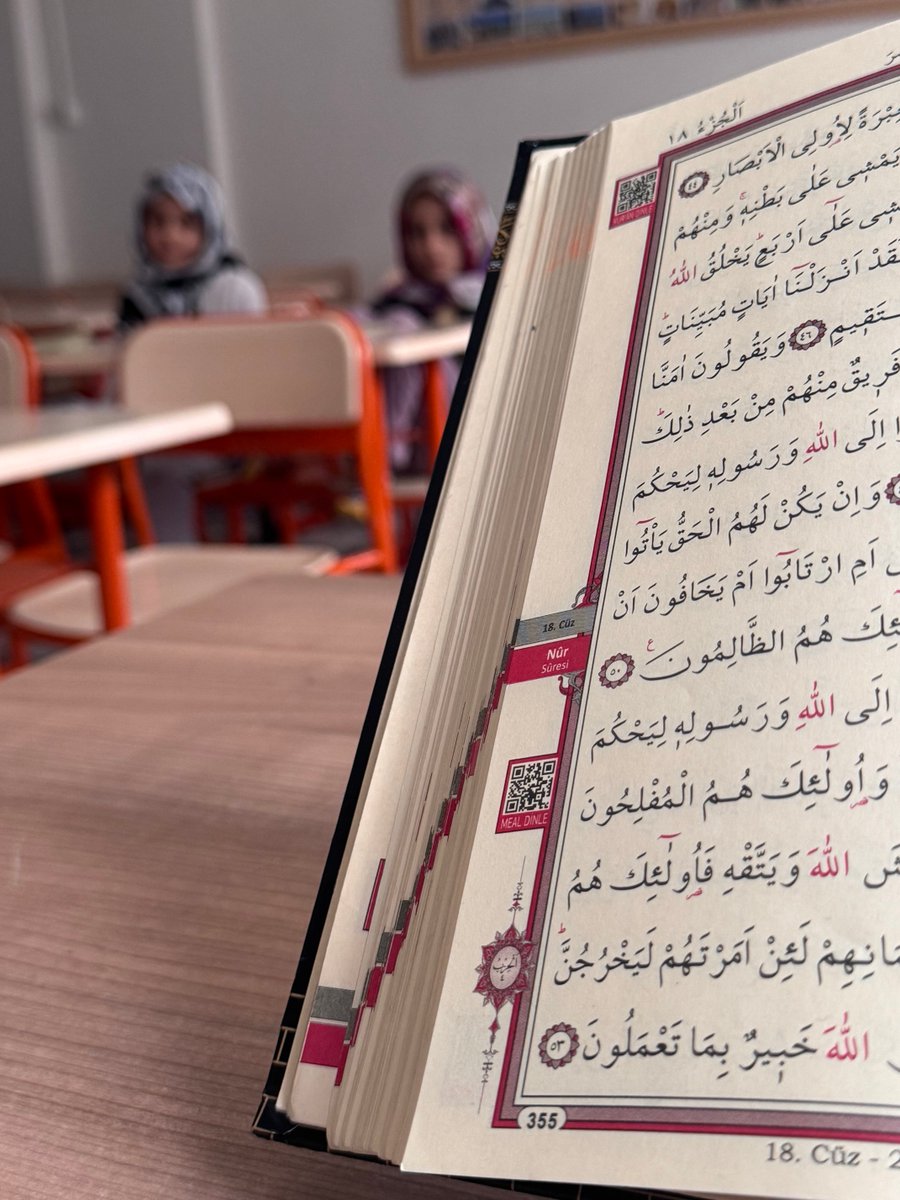 اَلْجُزْءُ ١٨
KUR'AN DİNLE
لِاُو۬لِى الْاَبْصَارِ ٤٤
يَمْش۪ى عَلٰى بَطْنِه۪ۚ وَمِنْهُمْ
عَلٰٓى اَرْبَعٍۜ يَخْلُقُ اللّٰهُ
اَنْزَلْنَٓا اٰيَاتٍ مُبَيِّنَاتٍۜ
٤٦ وَيَقُولُونَ اٰمَنَّا
فَر۪يقٌ مِنْهُمْ مِنْ بَعْدِ ذٰلِكَۜ
اِلَى اللّٰهِ وَرَسُولِه۪ لِيَحْكُمَ
وَاِنْ يَكُنْ لَهُمُ الْحَقُّ يَأْتُٓوا
اَمِ ارْتَابُٓوا اَمْ يَخَافُونَ اَنْ
18. Cüz
هُمُ الظَّالِمُونَ۟ ٥٠
Nûr
Sûresi
اِلَى اللّٰهِ وَرَسُولِه۪ لِيَحْكُمَ
وَاُو۬لٰٓئِكَ هُمُ الْمُفْلِحُونَ
MEAL DİNLE
اللّٰهَ وَيَتَّقْهِ فَاُو۬لٰٓئِكَ هُمُ
لَئِنْ اَمَرْتَهُمْ لَيَخْرُجُنَّۜ
الحزب
٤
اللّٰهَ خَب۪يرٌ بِمَا تَعْمَلُونَ ٥٣
355
18. Cüz - 2